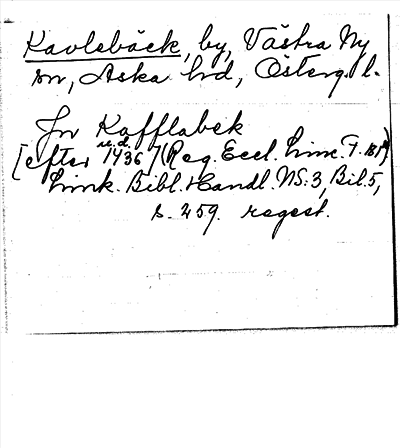 Kavlebäck, by, Västra Ny
sn, Aska hd, Österg. l.
Jn Kafflabek
u.d.
[efter 1436] (Reg. Eccl. Linc. F.
Link. Bibl. Handl. NS: 3, Bil. 5,
s. 259. regest.